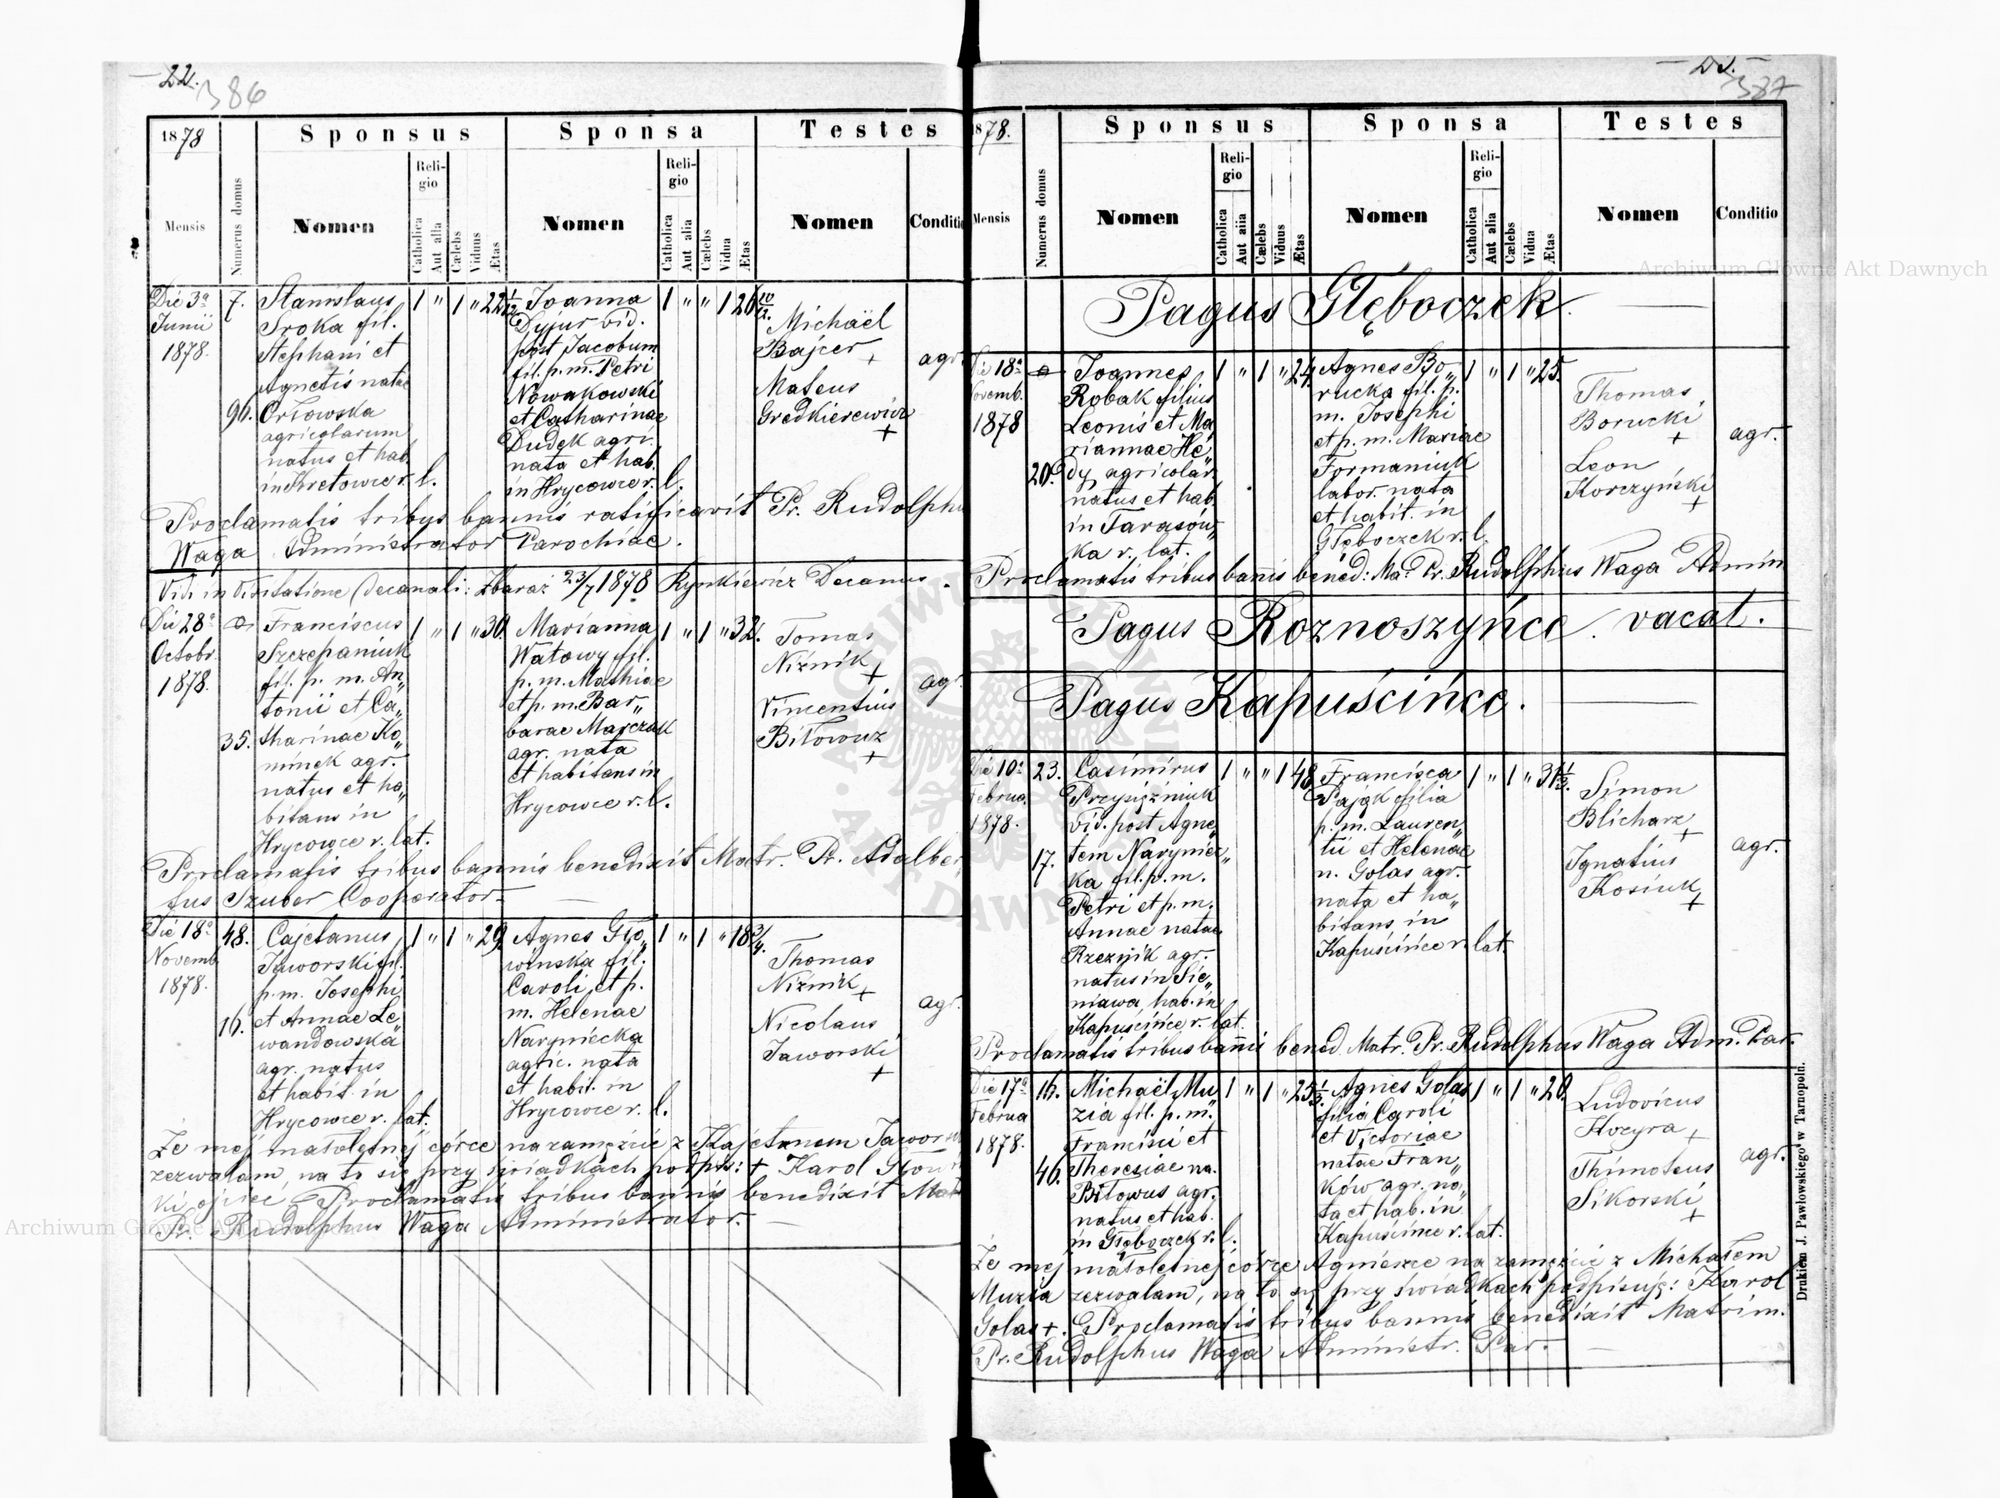 22.
386
1878
Sponsus
Sponsa
Testes
Mensis
Numerus domus
Nomen
Religio
Catholica
Aut alia
Cælebs
Viduus
Ætas
Nomen
Religio
Catholica
Aut alia
Cælebs
Vidua
Ætas
Nomen
Conditio
Die 3a
Junii
1878.
7.
96.
Stanislaus
Sroka fil.
Stephani et
Agnetis natae
Orłowska
agricolarum
natus et hab.
in Kretowce r. l.
1 " 1 " 22 1/12
Joanna
Dyjur vid.
post Jacobum
fil. p. m. Petri
Nowakowski
et Catharinae
Dudek agri.
nata et hab.
in Hrycowce r. l.
1 " " 1 26 10/12.
Michaël
Bajcer +
Mateus
Gredkierewicz
+
agr.
Proclamatis tribus bannis ratificavit Pr. Rudolphus
Waga Administrator Parochiae.
Vidi in Visitatione Decanali: Zbaraż 23/7 1878 Rynkiewicz Decanus.
Die 28a
Octobr.
1878.
35.
Franciscus
Szczepaniuk
fil. p. m. An„
tonii et Ca„
tharinae Ko„
minek agr.
natus et ha„
bitans in
Hrycowce r. lat.
1 " 1 " 30.
Marianna
Watowy fil.
p. m. Mathiae
et p. m. Bar„
barae Marczak
agr. nata
et habitans in
Hrycowce r. l.
1 " 1 " 32.
Tomas
Niżnik +
Vincentius
Biłowuz
+
agr.
Proclamatis tribus bannis benedixit Matr. Pr. Adalber„
tus Szuber Cooperator.
Die 18a
Novemb
1878.
48.
16.
Cajetanus
Jaworski fil.
p. m. Josephi
et Annae Le„
wandowska
agr. natus
et habit. in
Hrycowce r. lat.
1 " 1 " 29.
Agnes Gło„
winska fil.
Caroli et p.
m. Helenae
Narpniecka
agric. nata
et habit. in
Hrycowce r. l.
1 " 1 " 18 3/4.
Thomas
Niżnik +
Nicolaus
Jaworski
+
agr.
Że mej małoletnej córce na zamęźcie z Kajetanem Jawor
zezwalam, na to się przy świadkach podpis: + Karol Głowi
ki ojciec Proclamatis tribus bannis benedixit Mat
Pr. Rudolphus Waga Administrator.
387
1878.
Sponsus
Sponsa
Testes
Mensis
Numerus domus
Nomen
Religio
Catholica
Aut alia
Cælebs
Viduus
Ætas
Nomen
Religio
Catholica
Aut alia
Cælebs
Vidua
Ætas
Nomen
Conditio
Pagus Głęboczek.
Die 18a
Novemb.
1878
20.
Joannes
Robak filius
Leonis et Ma„
riannae He„
dy, agricolar.
natus et hab.
in Tarasów„
ka r. lat.
1 " 1 " 24.
Agnes Bo„
rucka fil. p.
m. Josephi
et p. m. Mariae
Formaniuk
labor. nata
et habit. in
Głęboczek r. l.
1 " 1 " 25.
Thomas
Borucki
+
Leon
Korczyński
+
agr.
Proclamatis tribus bannis bened: Ma: Pr. Rudolphus Waga Admin
Pagus Roznoszyńce. vacat.
Pagus Kapuścińce.
Die 10a
Februa.
1878.
23.
17.
Casimirus
Przysiężniuk
vid. post Agne„
tem Naryniec„
ka fil. p. m.
Petri et p. m.
Annae natae
Rzeznik agr.
natus in Sie„
niawa, hab. in
Kapuścińce r. lat.
1 " " 1 48
Francisca
Pająk filia
p. m. Lauren„
tii et Helenae
n. Golas agr.
nata et ha„
bitans in
Kapuścińce r. lat.
1 " 1 " 31 1/2.
Simon
Blicharz
+
Ignatius
Kosiuk
+
agr.
Proclamatis tribus bannis bened. Matr. Pr. Rudolphus Waga Adm. Par.
Die 17a
Februa
1878.
16.
46.
Michaël Mu„
zia fil. p. m.
Francisci et
Theresiae na.
Biłowus agr.
natus et hab.
in Głęboczek r. l.
1 " 1 " 25 1/2.
Agnes Golas
filia Caroli
et Victoriae
natae Fran„
ków agr. na„
ta et hab. in
Kapuścińce r. lat.
1 " 1 " 20.
Ludovicus
Hozyra
+
Thimoteus
Sikorski
+
agr.
Że mej małoletnej córce Agnieszce na zamęźcie z Michałem
Muzia zezwalam, na to się przy świadkach podpisuję: Karol
Golas +. Proclamatis tribus bannis benedixit Matrim.
Pr. Rudolphus Waga Administr. Par.
Drukiem J. Pawłowskiego w Tarnopolu.
Archiwum Główne Akt Dawnych
Archiwum Główne Akt Dawnych
ARCHIWUM GŁÓWNE
AKT DAWNYCH